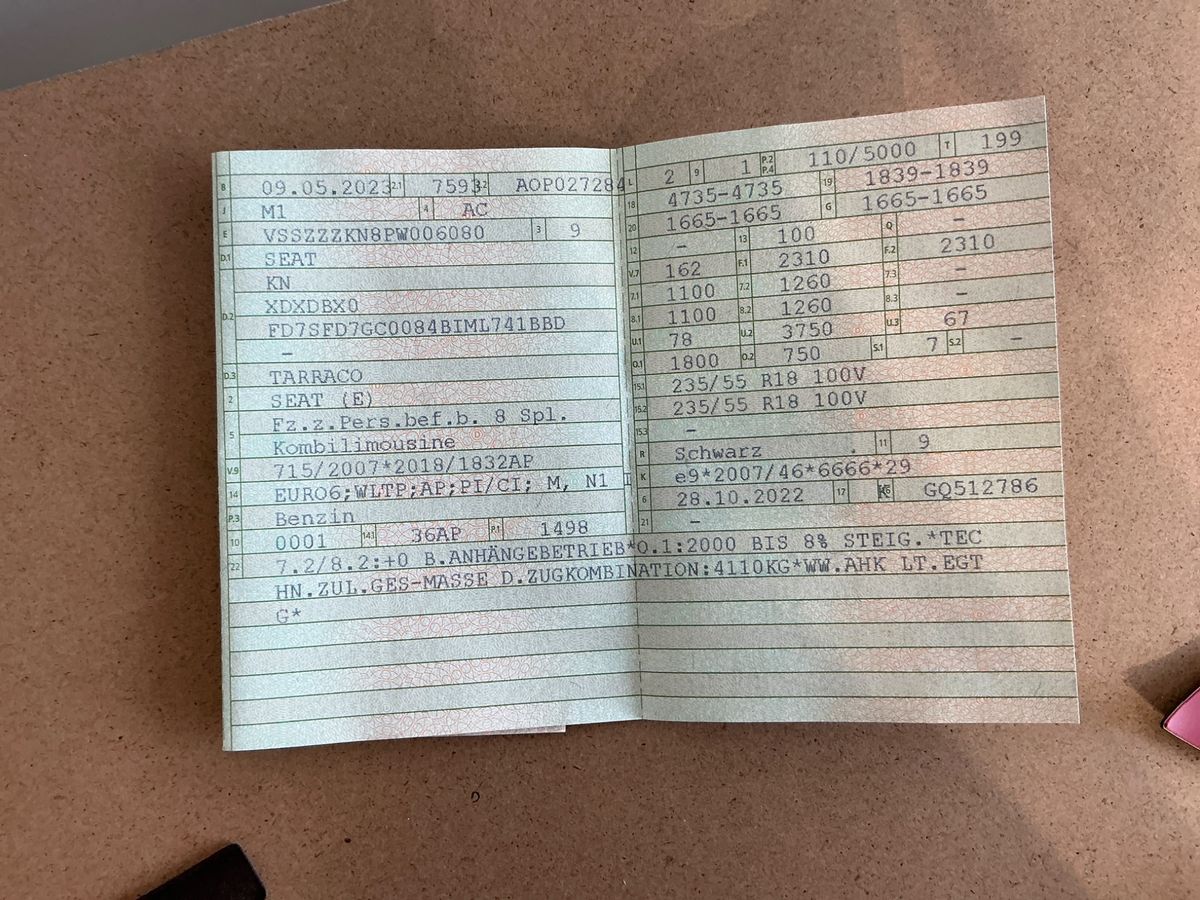 B 09.05.2023 2.1 7593 2.2 AOP027284
J M1 4 AC
E VSSZZZKN8PW006080 3 9
D.1 SEAT
KN
D.2 XDXDBX0
FD7SFD7GC0084BIML741BBD
–
D.3 TARRACO
2 SEAT (E)
Fz.z.Pers.bef.b. 8 Spl.
5 Kombilimousine
V.9 715/2007*2018/1832AP
14 EURO6;WLTP;AP;PI/CI; M, N1 I
P.3 Benzin
10 0001 14.1 36AP P.1 1498
22 7.2/8.2:+0 B.ANHÄNGEBETRIEB*O.1:2000 BIS 8% STEIG.*TEC
HN.ZUL.GES-MASSE D.ZUGKOMBINATION:4110KG*WW.AHK LT.EGT
G*
L 2 9 1 P.2 P.4 110/5000 T 199
18 4735-4735 19 1839-1839
20 1665-1665 G 1665-1665
12 – 13 100 Q –
V.7 162 F.1 2310 F.2 2310
7.1 1100 7.2 1260 7.3 –
8.1 1100 8.2 1260 8.3 –
U.1 78 U.2 3750 U.3 67
O.1 1800 O.2 750 S.1 7 S.2 –
15.1 235/55 R18 100V
15.2 235/55 R18 100V
15.3 –
R Schwarz 11 9
K e9*2007/46*6666*29
6 28.10.2022 17 K 16 GQ512786
21 –